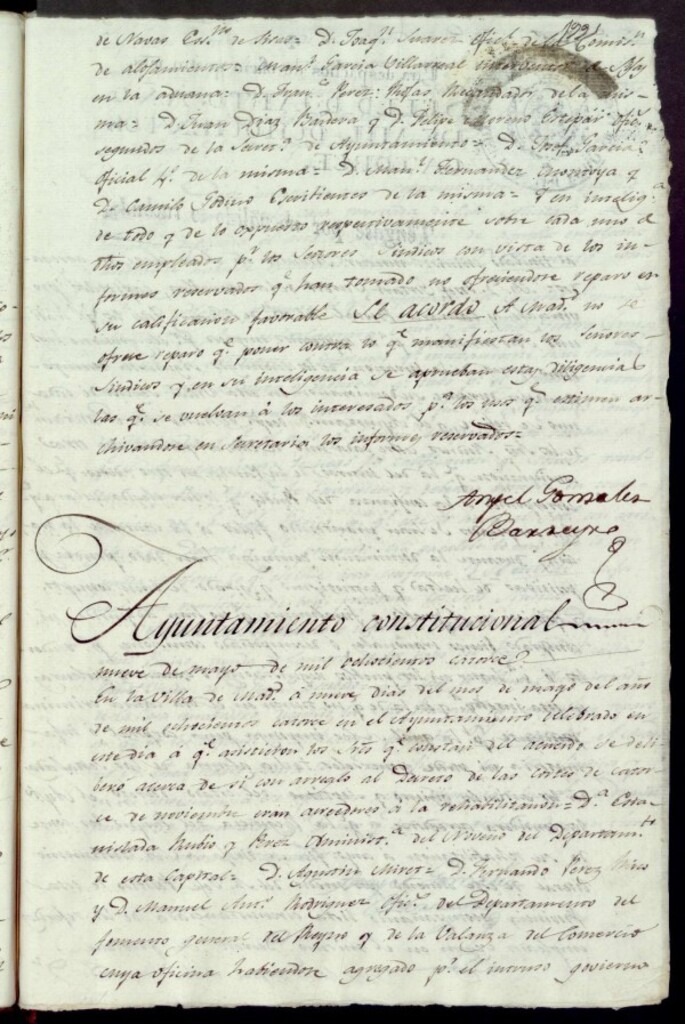 de Navas Es.no de Rent.s D. Joaq.n Suarez Ofic.l de la Comis.n
de alojamientos= Man.l Garcia Villarreal interventor
en la aduana= D. Fran.co Perez Recaudador de la mis-
ma= D. Juan Diaz Badera y D. Felipe Moreno ofic.s
segundos de la Secret.a de Ayuntamiento= D. Josef Garcia
Oficial 4.o de la misma= D. Man.l Fernandez Montoya y
D. Camilo Escribientes de la misma= Y en intelig.a
de todo y de lo expuesto respectivamente sobre cada uno de
dhos empleados p.r los Señores Sindicos con vista de los in-
formes reservados q.e han tomado no ofreciendose reparo en
su calificacion favorable Se acordo A Mad.d no se
ofrece reparo q.e poner contra lo q.e manifiestan los Señores
Sindicos y en su inteligencia se aprueban estas diligencias
las q.e se vuelvan á los interesados p.a los usos q.e estimen ar-
chivandose en Secretaria los informes reservados=
Angel Gonzalez
Barreyro
Ayuntamiento constitucional
nueve de mayo de mil ochocientos catorce.
En la Villa de Mad.d á nueve dias del mes de mayo del año
de mil ochocientos catorce en el Ayuntamiento celebrado en
este dia á q.e asistieron los Sres q.e constan del acuerdo se deli-
beró acerca de si con arreglo al Decreto de las Cortes de cator-
ce de noviembre eran acreedores á la rehabilitacion= D.a Esta-
nislada Rubio y Administ.a del Noveno del Departam.to
de esta Capital= D. Agustin Miret= D. Fernando Perez
y D. Manuel Ant.o Rodriguez ofic.s del Departamento del
fomento general del Reyno y de la Valanza del Comercio
cuya oficina habiendose agregado p.r el intruso govierno